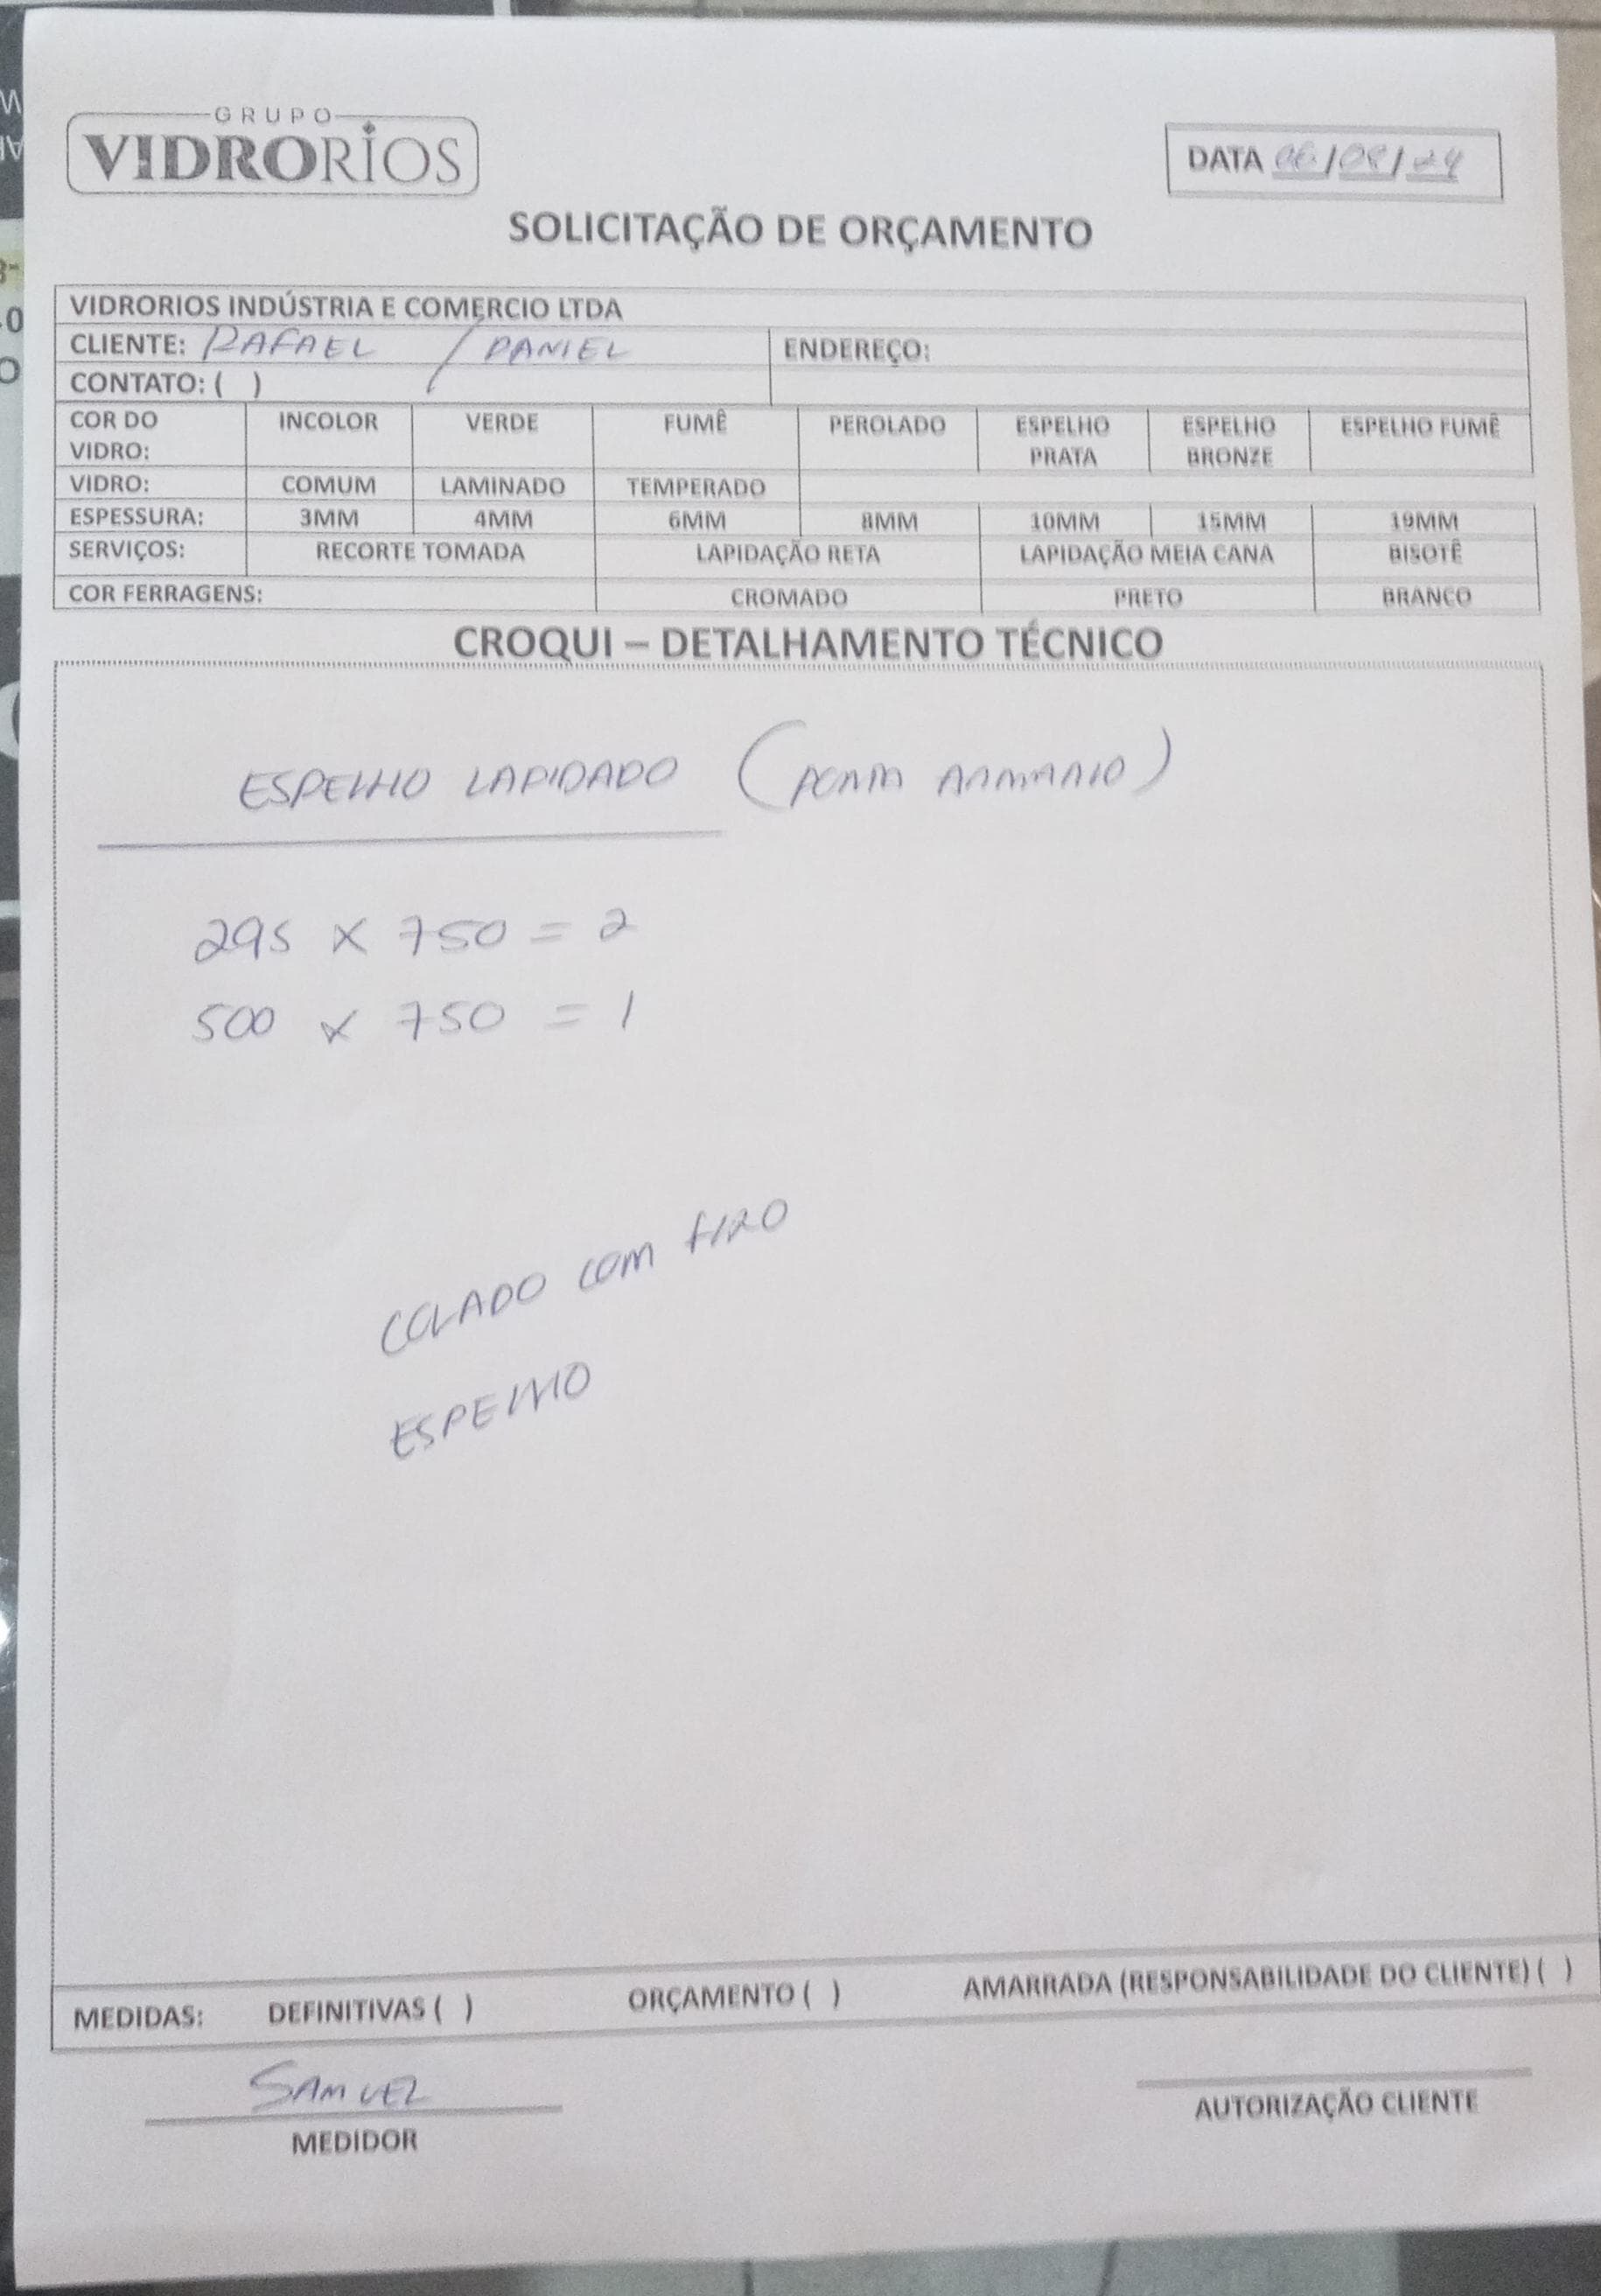 GRUPO
VIDRORIOS
DATA 06/08/24
SOLICITAÇÃO DE ORÇAMENTO
VIDRORIOS INDÚSTRIA E COMERCIO LTDA
CLIENTE: RAFAEL / DANIEL ENDEREÇO:
CONTATO: ( )
COR DO VIDRO: INCOLOR VERDE FUMÊ PEROLADO ESPELHO PRATA ESPELHO BRONZE ESPELHO FUMÊ
VIDRO: COMUM LAMINADO TEMPERADO
ESPESSURA: 3MM 4MM 6MM 8MM 10MM 15MM 19MM
SERVIÇOS: RECORTE TOMADA LAPIDAÇÃO RETA LAPIDAÇÃO MEIA CANA BISOTÊ
COR FERRAGENS: CROMADO PRETO BRANCO
CROQUI – DETALHAMENTO TÉCNICO
ESPELHO LAPIDADO (PORTA ARMARIO)
295 x 750 = 2
500 x 750 = 1
COLADO COM FIXO
ESPELHO
MEDIDAS: DEFINITIVAS ( ) ORÇAMENTO ( ) AMARRADA (RESPONSABILIDADE DO CLIENTE) ( )
SAMUEL
MEDIDOR
AUTORIZAÇÃO CLIENTE